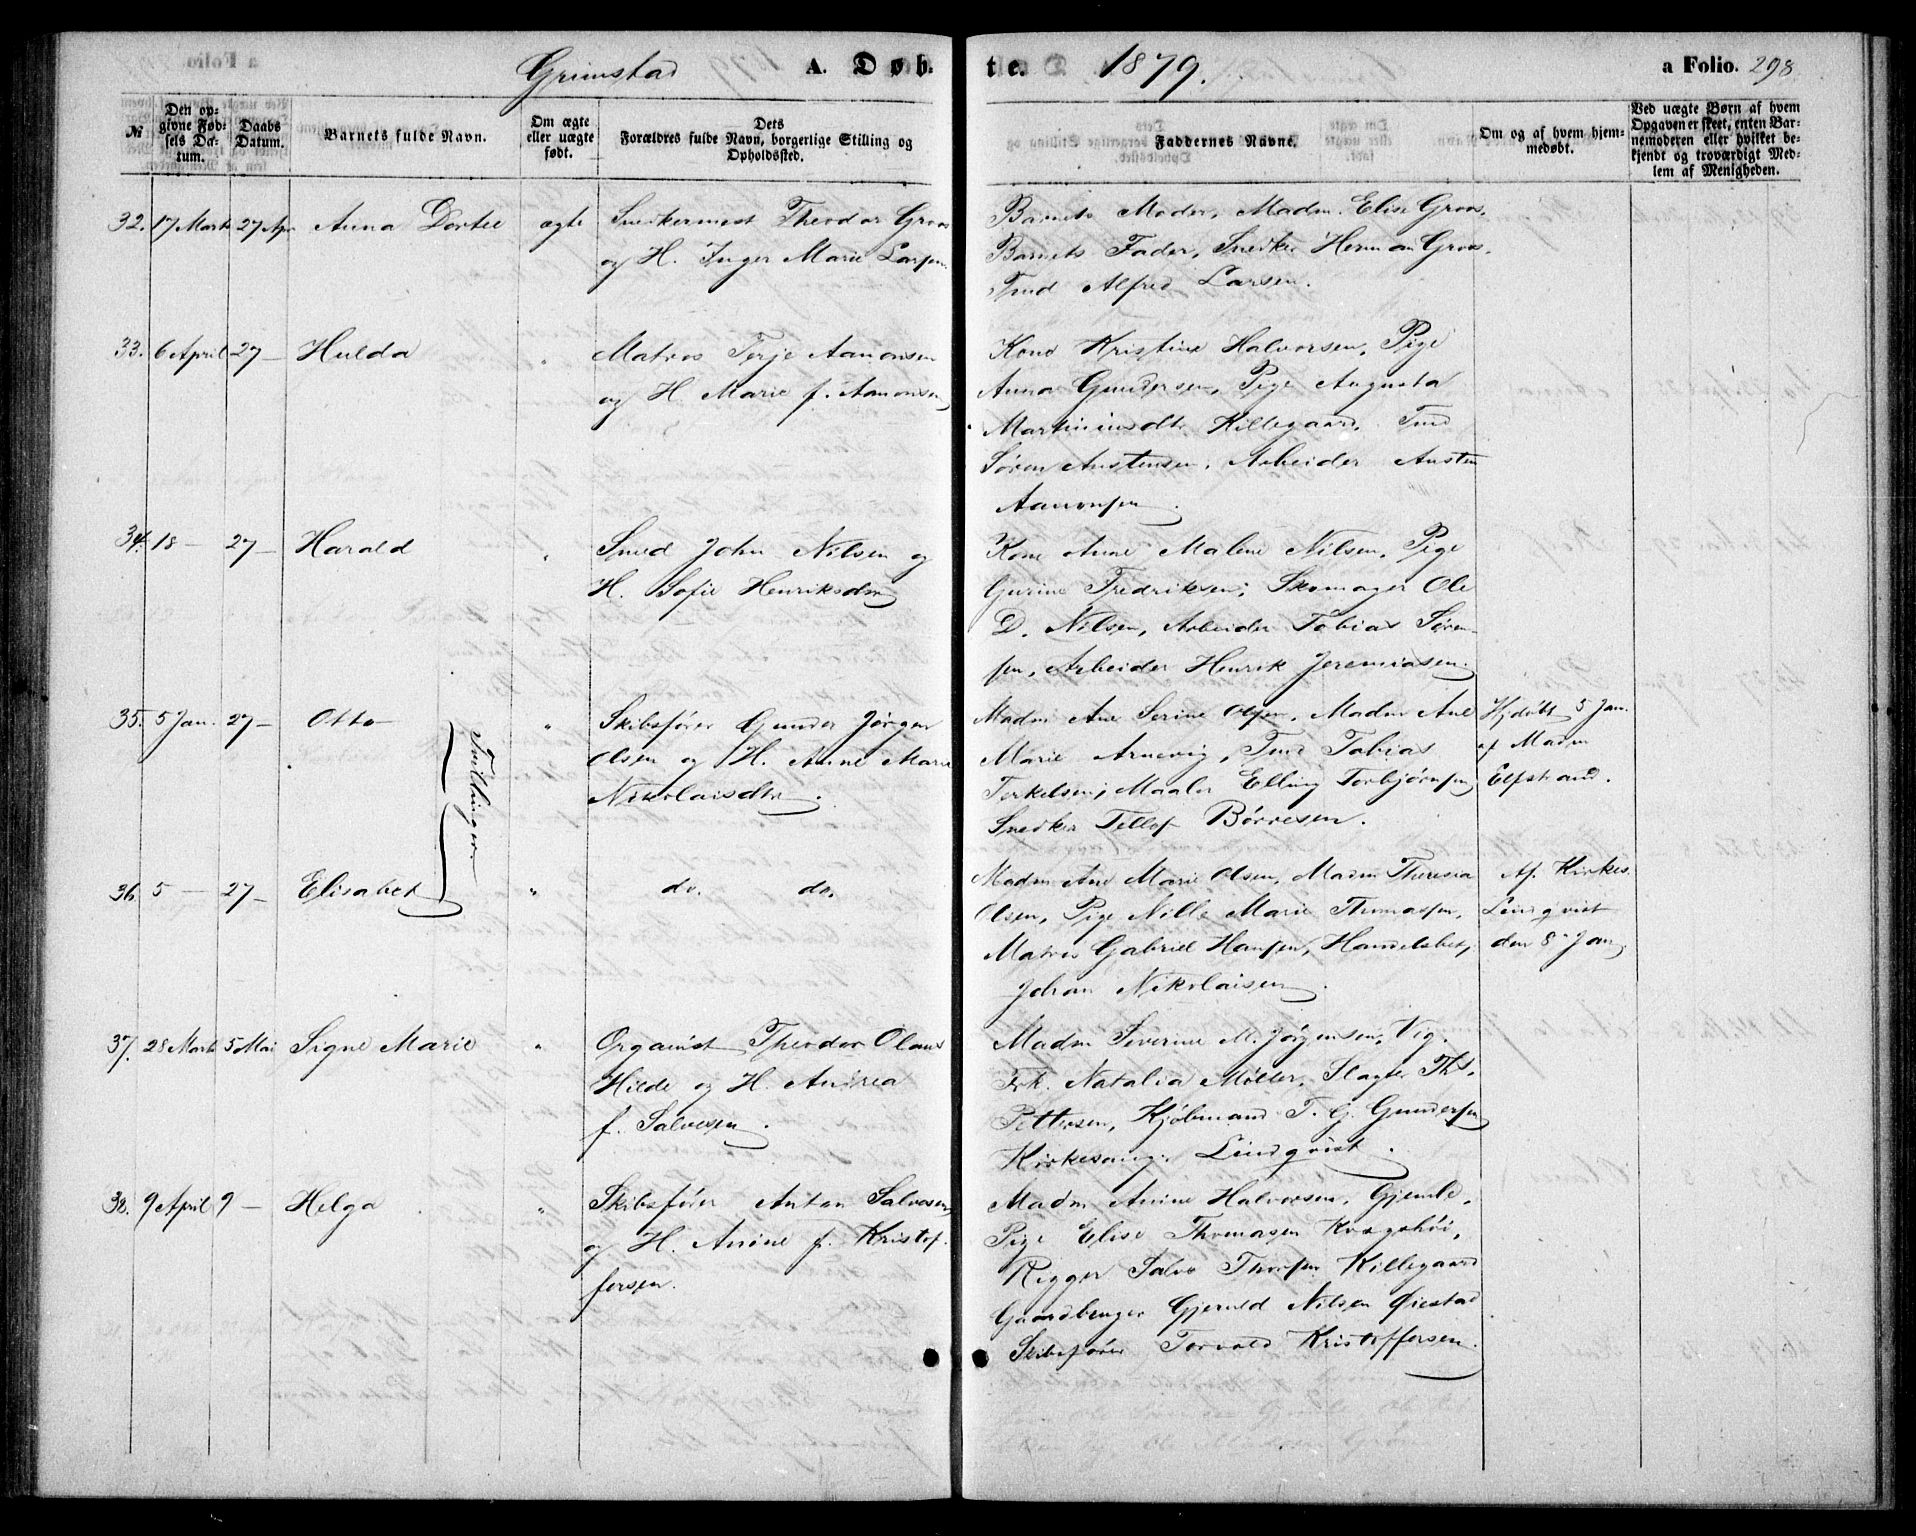 Grimstad A. Døb-
te. 1879. a Folio. 298
№
Den op-
givne Fød-
sels Da-
tum.
Daabs
Datum.
Barnets fulde Navn.
Om ægte
eller uægte
født.
Dets
Forældres fulde Navn, borgerlige Stilling og
Opholdssted.
Faddernes Navne.
Om og af hvem hjem-
medøbt.
Ved uægte Børn af hvem
Opgaven er skeet, enten Bar-
nemoderen eller hvilket be-
kjendt og troværdigt Med-
lem af Menigheden.
32. 17 Marts 27 Apr. Anna Dortee ægte
Snedkermest Theodor Groos
og H. Inger Marie Larsen
Barnets Moder, Madm. Elise Groos.
Barnets Fader, Snedker Herman Groos.
Smed Alfred Larsen.
33. 6 April 27 — Hulda "
Matros Terje Aanonsen
og H Marie f. Aanonsen
Kone Kristine Halvorsen, Pige
Anna Gundersen, Pige Augusta
Martiniusdtr Killegaard, Smed
Søren Austensen, Arbeider Austen
Aanonsen.
34. 18 — 27 — Harald "
Smed John Nilsen og
H. Sofie Henriksdtr
Kone Anne Malene Nilsen, Pige
Gurine Fredriksen; Skomager Ole
D. Nilsen, Arbeider Tobias Søren-
sen, Arbeider Henrik Jeremiasen.
35. 5 Jan. 27 — Otto "
Tvillinger
Skibsfører Gunder Jørgen
Olsen og H. Anne Marie
Nikolaisdtr.
Madm Ane Serine Olsen, Madm Ane
Marie Arnevig, Smd Tobias
Terkelsen; Maaler Elling Torbjørnsen
Snedker Tellef Børresen.
Hjdøbt 5 Jan.
af Madm
Elfstrand.
36. 5 — 27 — Elisabet "
do. do.
Madm Ane Marie Olsen, Madm Theresia
Olsen, Pige Nille Marie Thomassen,
Matros Gabriel Hansen, Handelsbet,
Johan Nikolaisen
Af Kirkes.
Lindqvist
den 8 Jan.
37. 28 Marts 5 Mai Signe Marie "
Organist Theodor Olaus
Hilde og H. Andrea
f. Salvesen.
Madm Severine M. Jørgensen, Vig.
Frk. Natalia Møller, Slagter Ths.
Pettersen, Kjøbmand T. G. Gundersen
Kirkesang. Lindqvist.
38. 9 April 9 — Helga "
Skibsfører Anton Salvesen
og H. Anine f. Kristof-
fersen.
Madm Anine Halvorsen, Gjemle.
Pige Elise Thomasen Kvægshøi,
Rigger Salve Thorsen Killegaard
Gaardbruger Gjeruld Nilsen Øiestad
Skibsfører Torvald Kristoffersen.